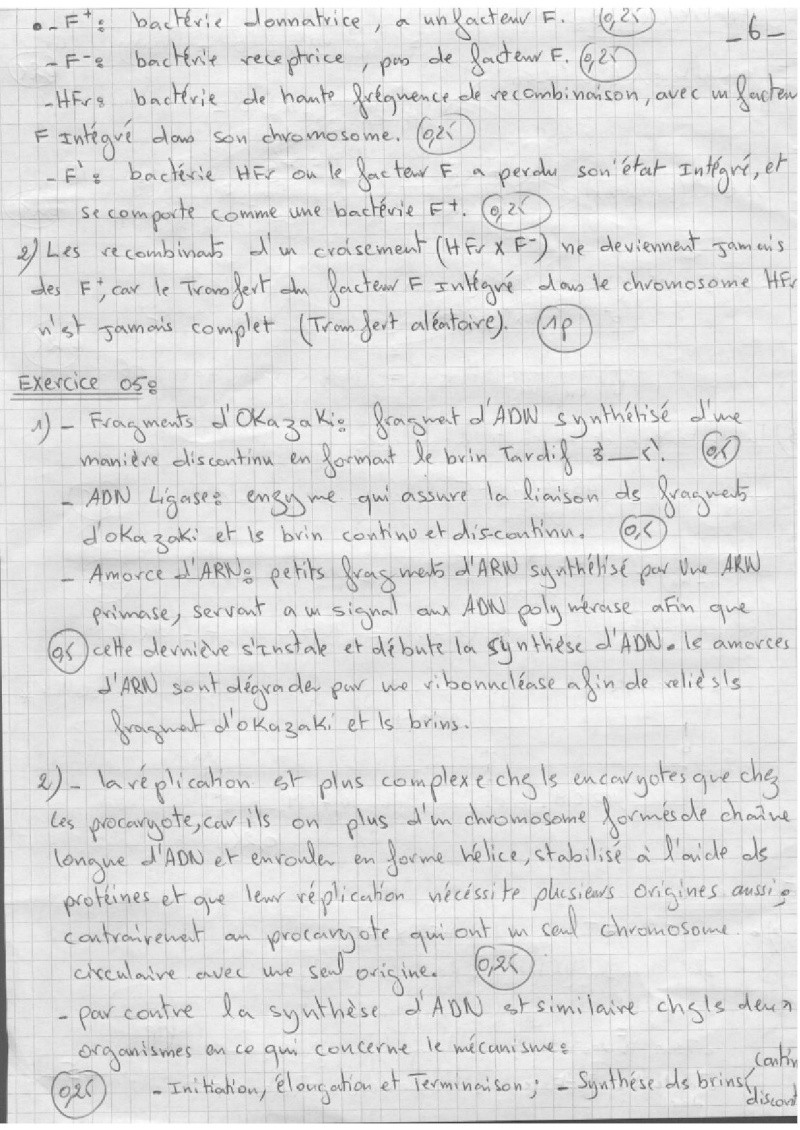 - F+: bactérie donnatrice, a un facteur F. (0,25)
- 6 -
- F-: bactérie receptrice, pas de facteur F. (0,25)
- HFr: bactérie de haute fréquence de recombinaison, avec un facteur
F Intégré dans son chromosome. (0,25)
- F': bactérie HFr ou le facteur F a perdu son état Intégré, et
se comporte comme une bactérie F+. (0,25)
2) Les recombinats d'un croisement (HFr X F-) ne deviennent Jamais
des F+, car le Transfert du facteur F Intégré dans le chromosome HFr
n'est Jamais complet (Transfert aléatoire). (1p)
Exercice 05:
1) - Fragments d'OKazaki: fragment d'ADN synthétisé d'une
manière discontinu en formant le brin Tardif 3'—5'. (0,5)
- ADN Ligase: enzyme qui assure la liaison ds fragments
d'okazaki et ls brin continu et discontinu. (0,5)
- Amorce d'ARN: petits fragments d'ARN synthétisé par Une ARN
primase, servant a un signal aux ADN polymérase afin que
(0,5) cette dernière s'instale et débute la synthèse d'ADN. le amorces
d'ARN sont dégrader par une ribonucléase afin de reliés ls
fragmat d'okazaki et ls brins.
2) - la réplication est plus complexe chez ls eucaryotes que chez
les procaryote, car ils on plus d'un chromosome formés de chaîne
longue d'ADN et enrouler en forme hélice, stabilisé à l'aide ds
protéines et que leur réplication nécéssite plusieurs origines aussi.
contrairement au procaryote qui ont un seul chromosome
circulaire avec une seul origine. (0,25)
- par contre la synthèse d'ADN est similaire chez ls deux
organismes en ce qui concerne le mécanisme:
(0,25) - Initiation, élongation et Terminaison; - Synthèse ds brins contin
discont